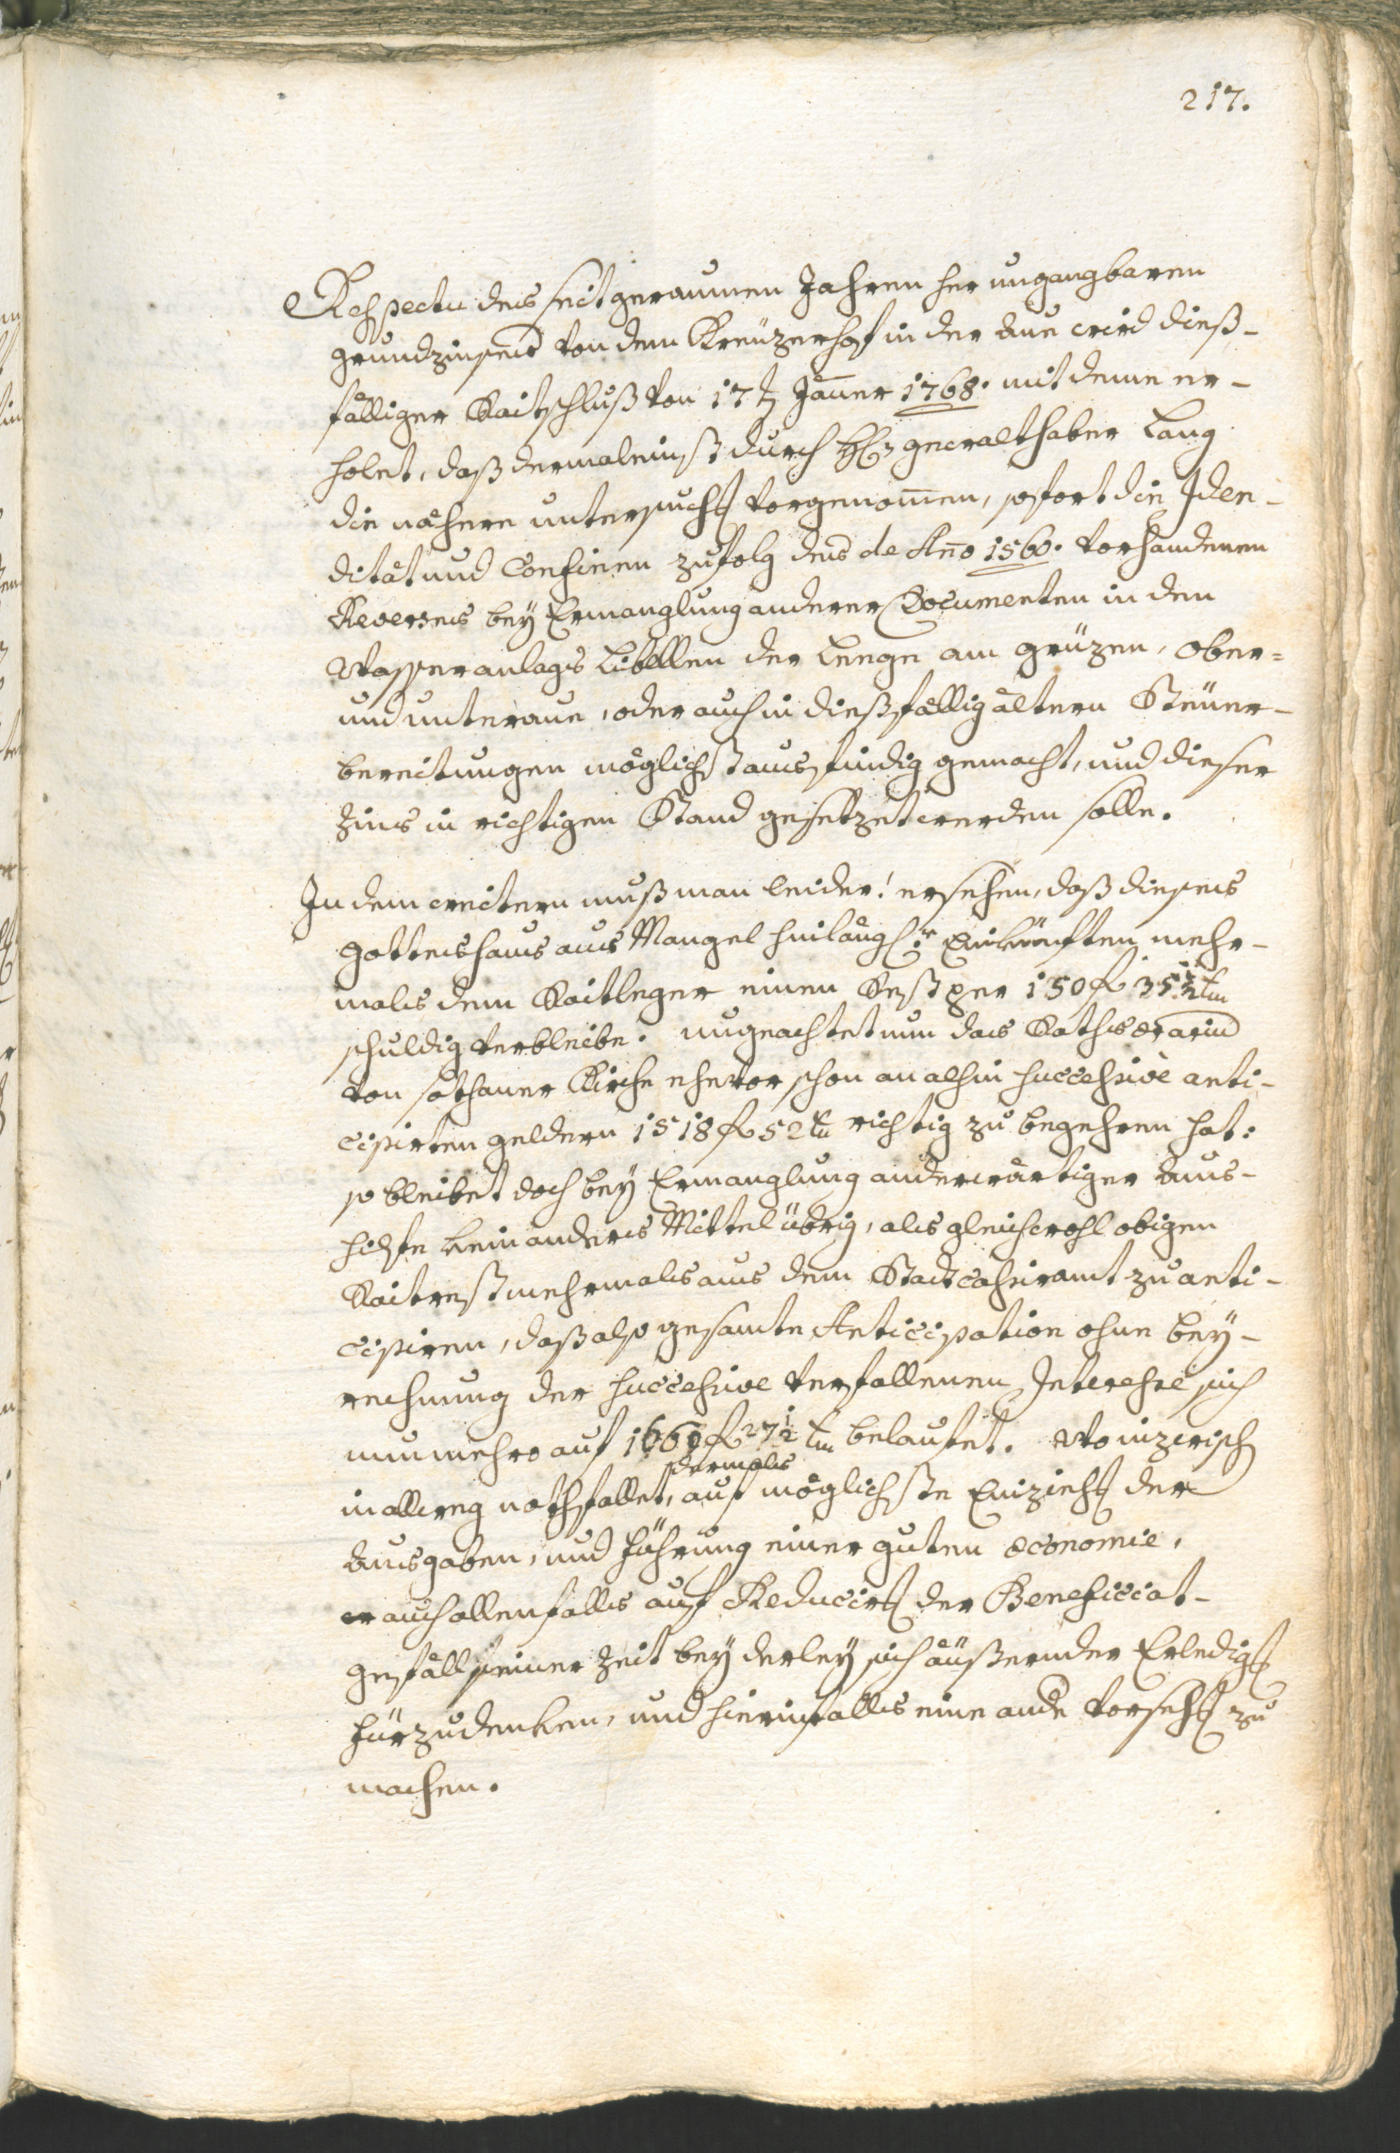 217.
Respectu des seit geraumen Jahren her ungangbaren
grundzinses von dem Kreuzerhof in der Aue wird dieß-
fälliger Raitschluß von 17t Jäner 1768. mit deme er-
holet, daß dermaleinst durch H: gwalthaber Lang
die nähere untersuch͠ vorgenom̄en, sofort die Iden-
dität und Confinen zufolg des de An̄o 1560. vorhandenen
Reverses bey Ermanglung anderer Documenten in den
Wasseranlags Libellen der Lenge am grüzen, Ober=
und unteraue, oder auch in dießfällig ältern Steuer-
bereitungen möglichst ausfindig gemacht, und dieser
Zins in richtigen Stand gesetzet werden solle.
In dem weitern muß man leider! ersehen, daß dieses
gotteshaus aus Mangel hinlängl:r Einkünften mehr-
mals dem Raitleger einen Rest per 150 f 35½ kr
schuldig verbleibe. ungeachtet nun das Raths ærariu͠
von sothaner Kirche ehevor schon an alhin successivè anti-
cipirten geldern 1518 f 52 kr richtig zu begehren hat:
so bleibet doch bey Ermanglung anderwärtiger Aus-
hilfe kein anders Mittel übrig, als gleichwohl obigen
Raitrest mehrmals aus dem Stadtcassieramt zu anti-
cipiren, daß also gesamte Anticipation ohne bey-
rechnung der successive verfallenen Interesse sich
nunmehro auf 1669 f 27½ kr belaufet. Wo inzwisch͠
in allweg nothfallet, dermals auf möglichste Einzieh͠ der
Ausgaben, und führung einer guten œconomie,
wo auch allenfalls auf Reducir͠ der Beneficiat-
gefäll seiner Zeit bey derley sich äußernder Erledig͠
fürzudenken, und hierinfalls eine andre Vorseh͠ zu
machen.